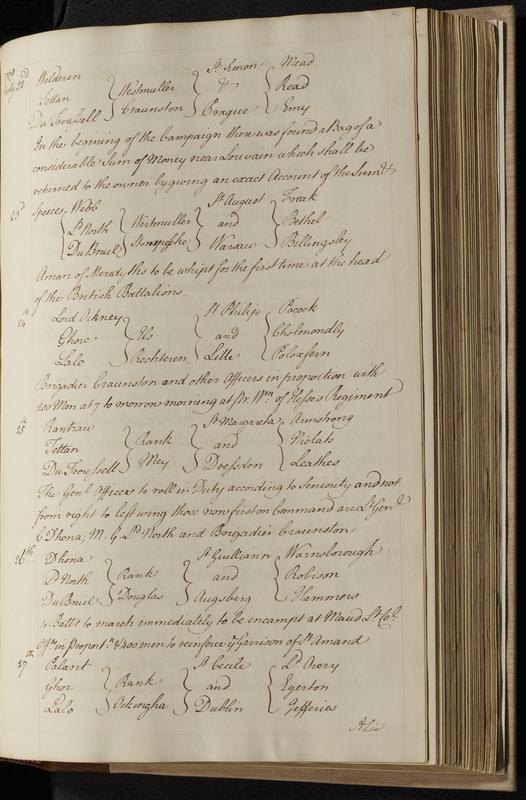 July 22d Welderen } Westmuller } St. Simon { Mead
Tettan } Craunston } & { Read
Du Troussell } Prague { Emy
In the begining of the Campaign there was found a Bag of a
considerable Sum of Money near Louvain which shall be
returned to the owner by giving an exact Account of the Sum &
23d Species, Webb } Westmuller } St. August { Freak
Ld. North } and { Bethel
Du Bruel } Warsaw { Billingsley
A man of Meredyths to be whipt for the first time at the head
of the British Battalions.
24 Lord Orkney } Els } St. Philip { Pocock
Ghore } and { Cholmondly
Lalo } Rechteren } Lille {
Brigadier Craunston and other Officers in proportion with
200 Men at 7 to morrow morning at Pr. Wm. of Hesses Regiment
25 Rantzau } Rank } St. Margareta { Armstrong
Tettan } and { Violats
Du Troussell } Mey } Dresden { Leathes
The Genl. Officers to roll in Duty according to Seniority and not
from right to left wing those now first on Command are Lt. Genl.
C. Dhona, M. G. Ld. North and Brigadier Craunston
26th Dhona } Rank } St. Guilliann { Warnsborough
Ld. North } and { Robison
Du Bruel } Douglas } Augsberg { Hammers
4 Batts. to march immediately to be encampt at Maud Lt. Col.
Offrs. in Proportn. & 400 men to reinforce ye Garrison of St. Amand
27th Palant } Rank } St. Cecile { Ld. Orery
Ghor } and { Egerton
Lalo } Ockingha } Dublin { Jefferies
A List